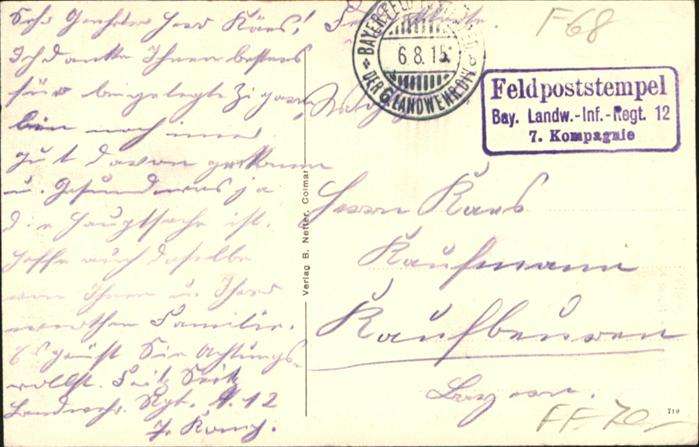 Sehr Geehrter Herr Käs!
Ich danke Ihnen bestens
für beigelegte Zigarren,
bin noch immer
gut davon gekommen
u. Gesund was ja
die Hauptsache ist.
Hoffe auch dasselbe
von Ihnen u. Ihrer
werthen Familie.
Es grüßt Sie Achtungs-
vollst.
Landwehr. Rgt. 12
7. Komp.
Feldpostkarte.
F68
BAYER. FELD
6.8.15.
DER 6. LANDWEHR. DIV.
Feldpoststempel
Bay. Landw.-Inf.-Regt. 12
7. Kompagnie
Herrn Kaes
Kaufmann
Kaufbeuren
Bayern.
Verlag B. Netter, Colmar
719
FF. 70,-